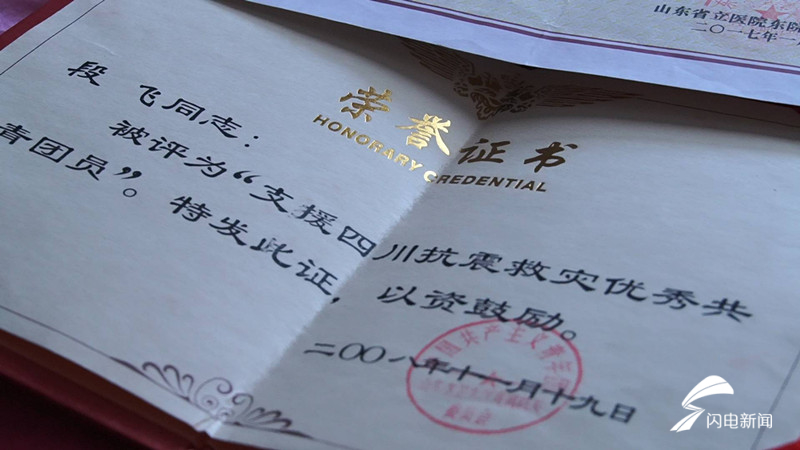 山东省立医院东院
二〇一七年一月
荣誉证书
HONORARY CREDENTIAL
段 飞同志：
被评为“支援四川抗震救灾优秀共
青团员”。特发此证，以资鼓励。
国共产主义青年团
二〇〇八年十一月十九日
闪电新闻